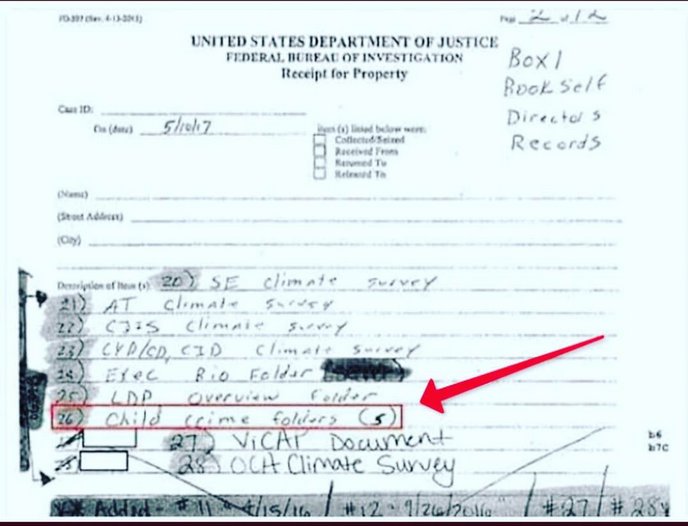 FD-597 (Rev. 4-13-2015)
Page 2 of 12
UNITED STATES DEPARTMENT OF JUSTICE
FEDERAL BUREAU OF INVESTIGATION
Receipt for Property
Box 1
Book Self
Directors
Records
Case ID:
On (date) 5/10/17
item (s) listed below were:
Collected/Seized
Received From
Returned To
Released To
(Name)
(Street Address)
(City)
Description of Item (s): 20) SE climate survey
21) AT Climate survey
22) CJIS Climate survey
23) CYD/CD, CID Climate survey
24) Exec Bio Folder
25) LDP Overview Folder
26) Child crime folders (5)
27) ViCAP Document
28) OCA Climate Survey
b6
b7C
Added - #11 4/15/16 / #12 - 9/26/2016 / #27 / #28